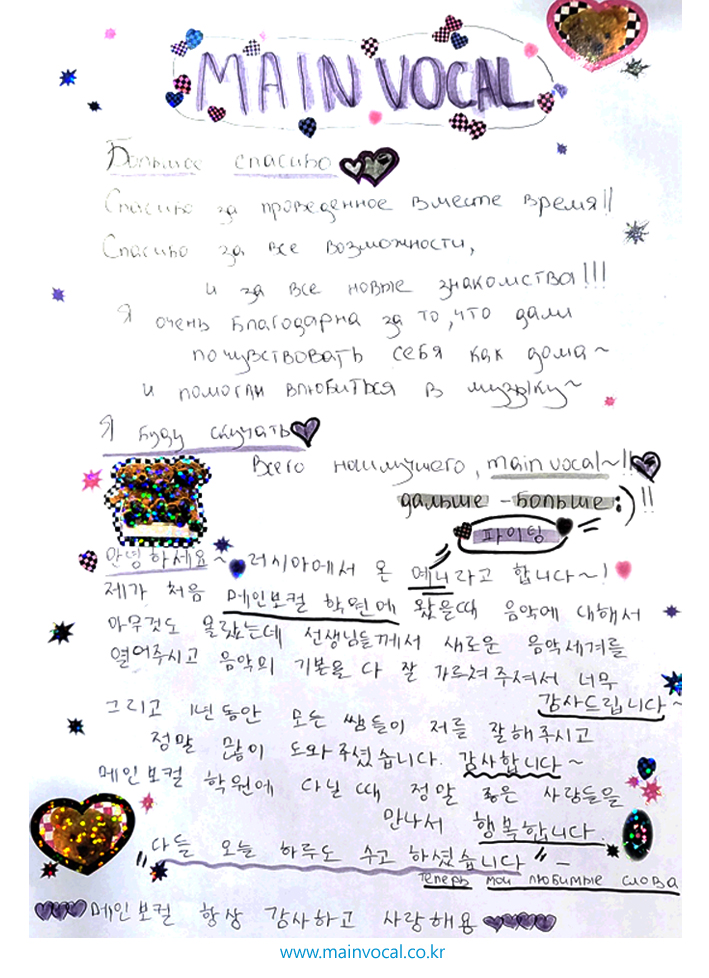 MAIN VOCAL
Большое спасибо
Спасибо за проведенное вместе время!!
Спасибо за все возможности,
и за все новые знакомства!!!
Я очень благодарна за то, что дали
почувствовать себя как дома~
и помогли влюбиться в музыку~
Я буду скучать
Всего наилучшего, main vocal~!!
дальше - больше :) !!
파이팅
안녕하세요~ 러시아에서 온 예니라고 합니다~!
제가 처음 메인보컬 학원에 왔을때 음악에 대해서
아무것도 몰랐는데 선생님들께서 새로운 음악세계를
열어주시고 음악의 기본을 다 잘 가르쳐주셔서 너무
감사드립니다~
그리고 1년동안 모든 쌤들이 저를 잘해주시고
정말 많이 도와주셨습니다. 감사합니다~
메인보컬 학원에 다닐때 정말 좋은 사람들을
만나서 행복합니다.
"다들 오늘 하루도 수고하셨습니다" –
теперь мои любимые слова
메인보컬 항상 감사하고 사랑해용
www.mainvocal.co.kr